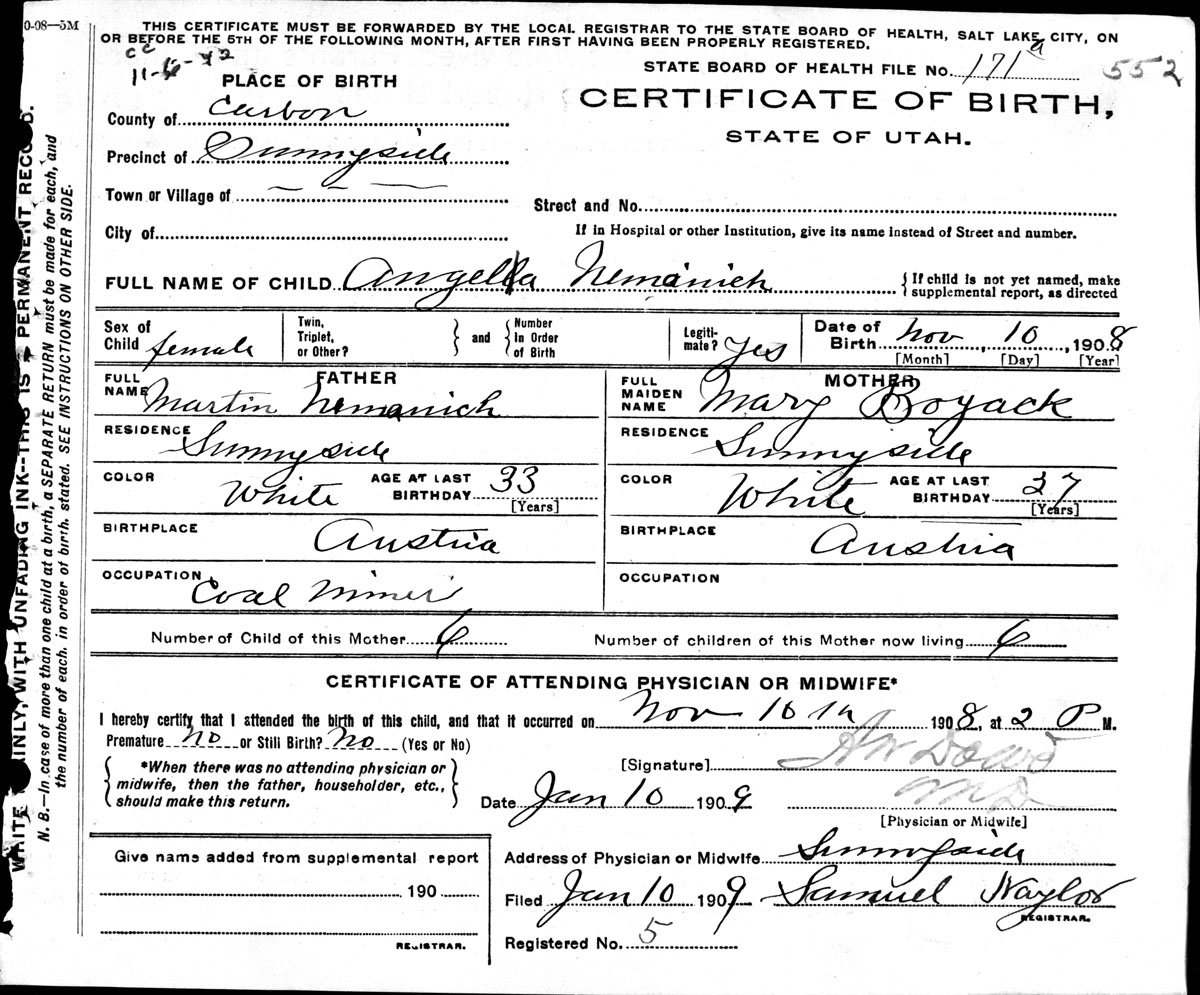 0-08—5M
THIS CERTIFICATE MUST BE FORWARDED BY THE LOCAL REGISTRAR TO THE STATE BOARD OF HEALTH, SALT LAKE CITY, ON
OR BEFORE THE 5TH OF THE FOLLOWING MONTH, AFTER FIRST HAVING BEEN PROPERLY REGISTERED.
cc
11-6-42
STATE BOARD OF HEALTH FILE No. 171 a 552
PLACE OF BIRTH
CERTIFICATE OF BIRTH,
STATE OF UTAH.
County of Carbon
Precinct of Sunnyside
Town or Village of — — —
Street and No.
City of
If in Hospital or other Institution, give its name instead of Street and number.
FULL NAME OF CHILD Angella Nemanich
{ If child is not yet named, make
supplemental report, as directed
Sex of Child female
Twin, Triplet, or Other? } and { Number in Order of Birth
Legiti-mate? Yes
Date of Birth Nov 10, 1908
[Month] [Day] [Year]
FATHER
FULL NAME Martin Nemanich
RESIDENCE Sunnyside
COLOR White AGE AT LAST BIRTHDAY 33 [Years]
BIRTHPLACE Austria
OCCUPATION Coal miner
MOTHER
FULL MAIDEN NAME Mary Boyack
RESIDENCE Sunnyside
COLOR White AGE AT LAST BIRTHDAY 27 [Years]
BIRTHPLACE Austria
OCCUPATION
Number of Child of this Mother 6 Number of children of this Mother now living 6
CERTIFICATE OF ATTENDING PHYSICIAN OR MIDWIFE*
I hereby certify that I attended the birth of this child, and that it occurred on Nov 10th 1908, at 2 P M.
Premature no or Still Birth? No (Yes or No)
{ *When there was no attending physician or
midwife, then the father, householder, etc.,
should make this return. }
[Signature] Dowd
MD
Date Jan 10 1909
[Physician or Midwife]
Give name added from supplemental report
190
REGISTRAR.
Address of Physician or Midwife Sunnyside
Filed Jan 10 1909 Samuel Naylor
REGISTRAR.
Registered No. 5
WRITE PLAINLY, WITH UNFADING INK--THIS IS A PERMANENT RECORD.
N. B.—In case of more than one child at a birth, a SEPARATE RETURN must be made for each, and
the number of each. in order of birth. stated. SEE INSTRUCTIONS ON OTHER SIDE.